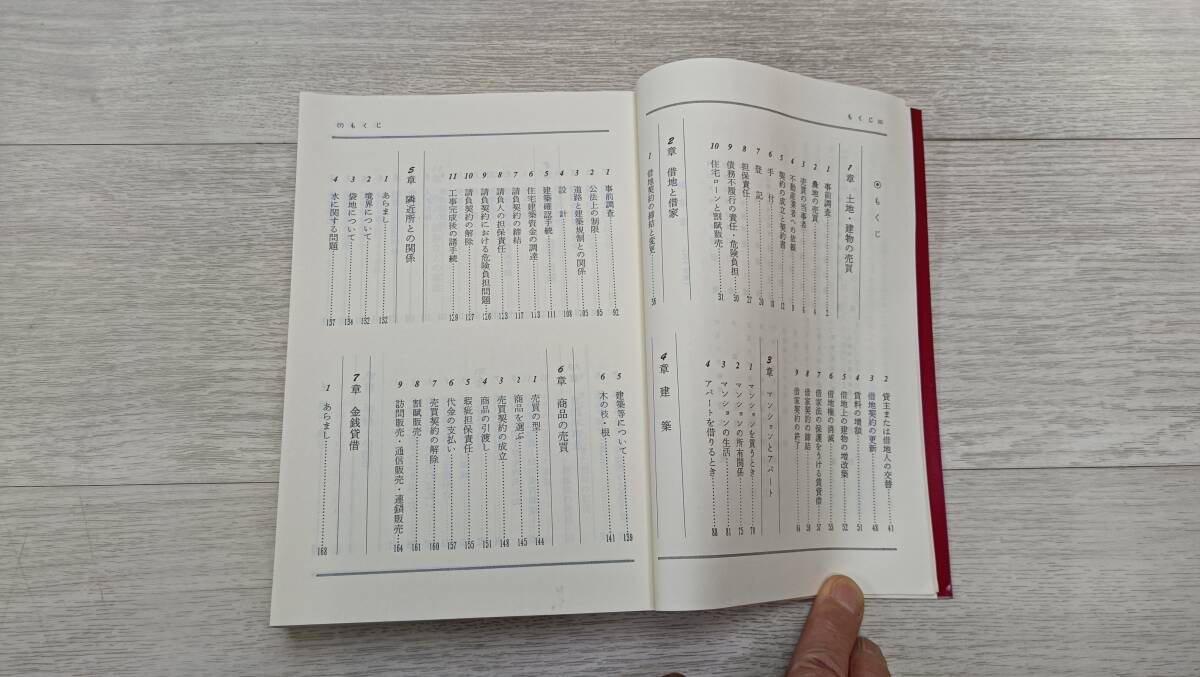 もくじ
●もくじ
1章 土地・建物の売買
1 事前調査……2
2 農地の売買……4
3 売買の当事者……6
4 不動産業者への依頼……9
5 契約の成立と契約書……12
6 手付……18
7 登記……20
8 担保責任……27
9 債務不履行の責任・危険負担……30
10 住宅ローンと割賦販売……31
2章 借地と借家
1 借地契約の締結と変更……36
2 貸主または借地人の交替……41
3 借地契約の更新……48
4 賃料の増額……51
5 借地上の建物の増改築……52
6 借地権の消滅……55
7 借家法の保護をうける賃貸借……57
8 借家契約の締結……58
9 借家契約の終了……64
3章 マンションとアパート
1 マンションを買うとき……70
2 マンションの所有関係……75
3 マンションの生活……81
4 アパートを借りるとき……88
4章 建築
もくじ
1 事前調査……92
2 公法上の制限……95
3 道路と建築規制との関係……105
4 設計……108
5 建築確認手続……111
6 住宅建築資金の調達……113
7 請負契約の締結……117
8 請負人の担保責任……123
9 請負契約における危険負担問題……126
10 請負契約の解除……127
11 工事完成後の諸手続……129
5章 隣近所との関係
1 あらまし……132
2 境界について……132
3 袋地について……134
4 水に関する問題……137
5 建築等について……139
6 木の枝・根……141
6章 商品の売買
1 売買の型……144
2 商品を選ぶ……145
3 売買契約の成立……148
4 商品の引渡し……151
5 瑕疵担保責任……155
6 代金の支払い……157
7 売買契約の解除……160
8 割賦販売……161
9 訪問販売・通信販売・連鎖販売……164
7章 金銭貸借
1 あらまし……168